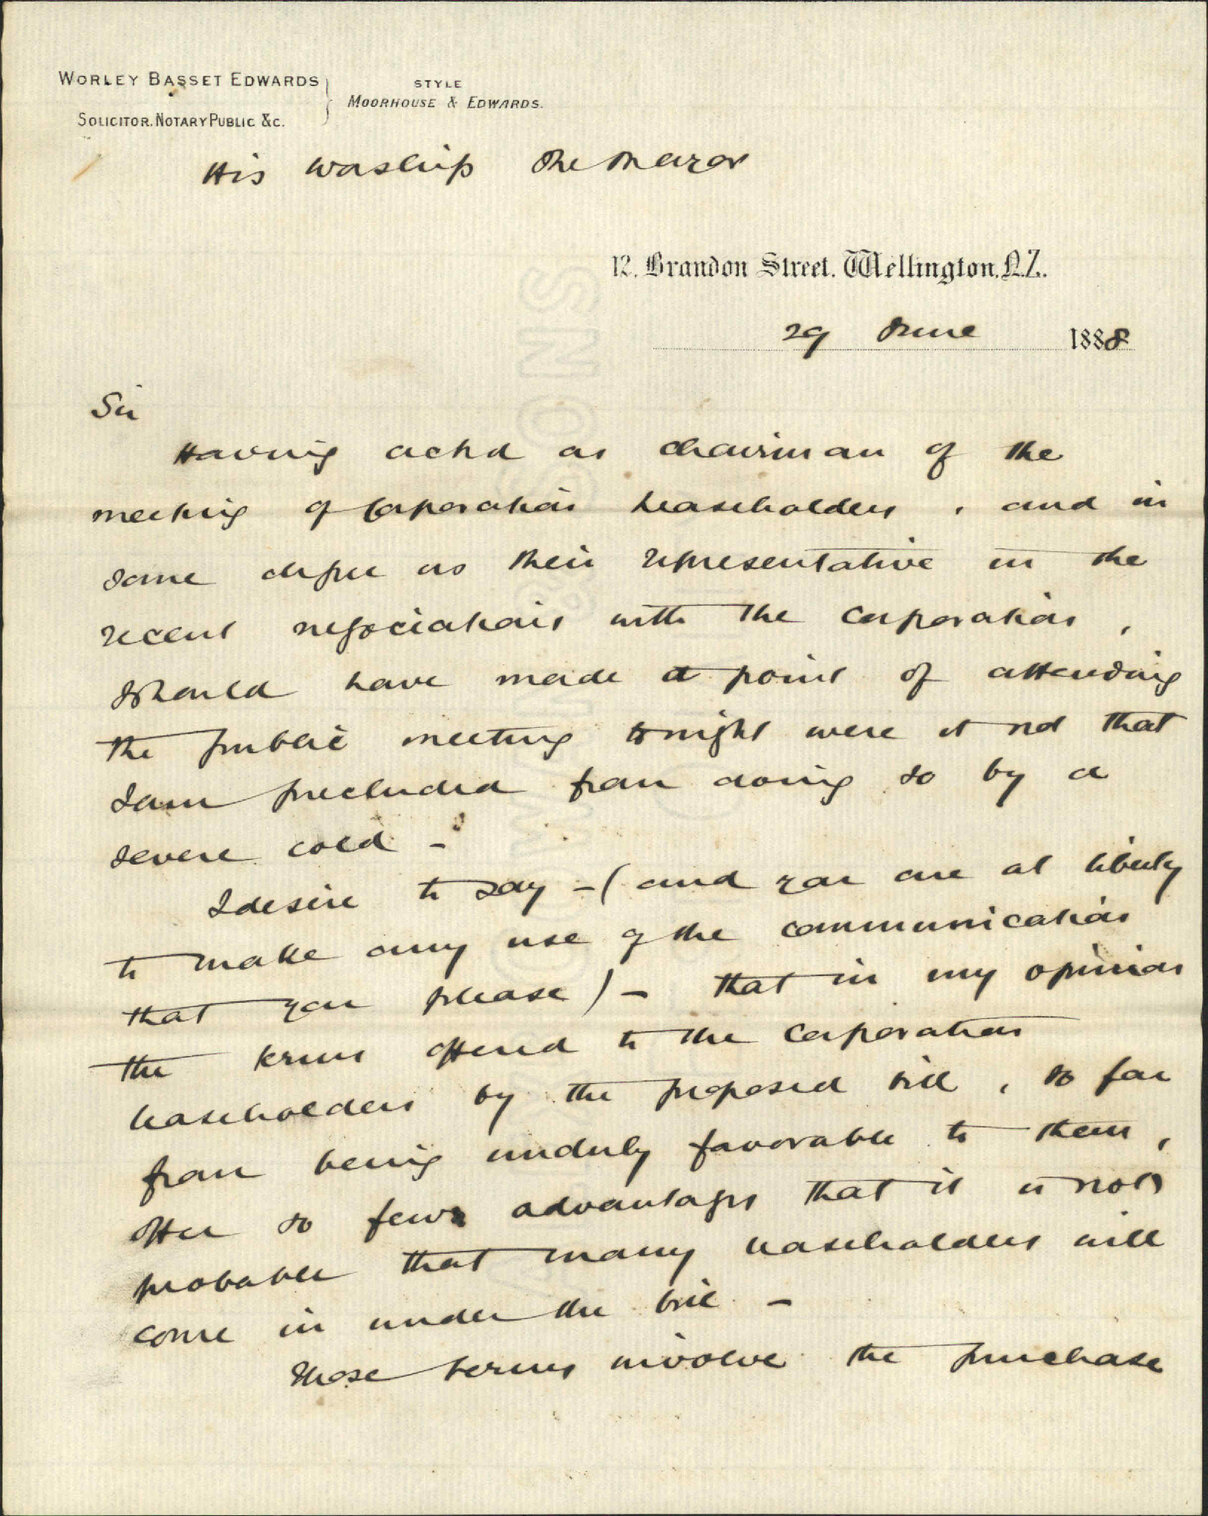 WORLEY BASSET EDWARDS
SOLICITOR. NOTARY PUBLIC &C.
STYLE
MOORHOUSE & EDWARDS.
His Worship The Mayor
12. Brandon Street. Wellington. N.Z.
29 June 1888
Sir
Having acted as chairman of the
meeting of Corporation leaseholders, and in
some degree as their representative in the
recent negociations with the Corporation,
I should have made a point of attending
the public meeting tonight were it not that
I am precluded from doing so by a
severe cold -
I desire to say - (and you are at liberty
to make any use of the communication
that you please) - that in my opinion
the terms offered to the Corporation
leaseholders by the proposed bill, so far
from being unduly favorable to them,
offer so few advantages that it is not
probable that many leaseholders will
come in under the bill -
Those terms involve the purchase